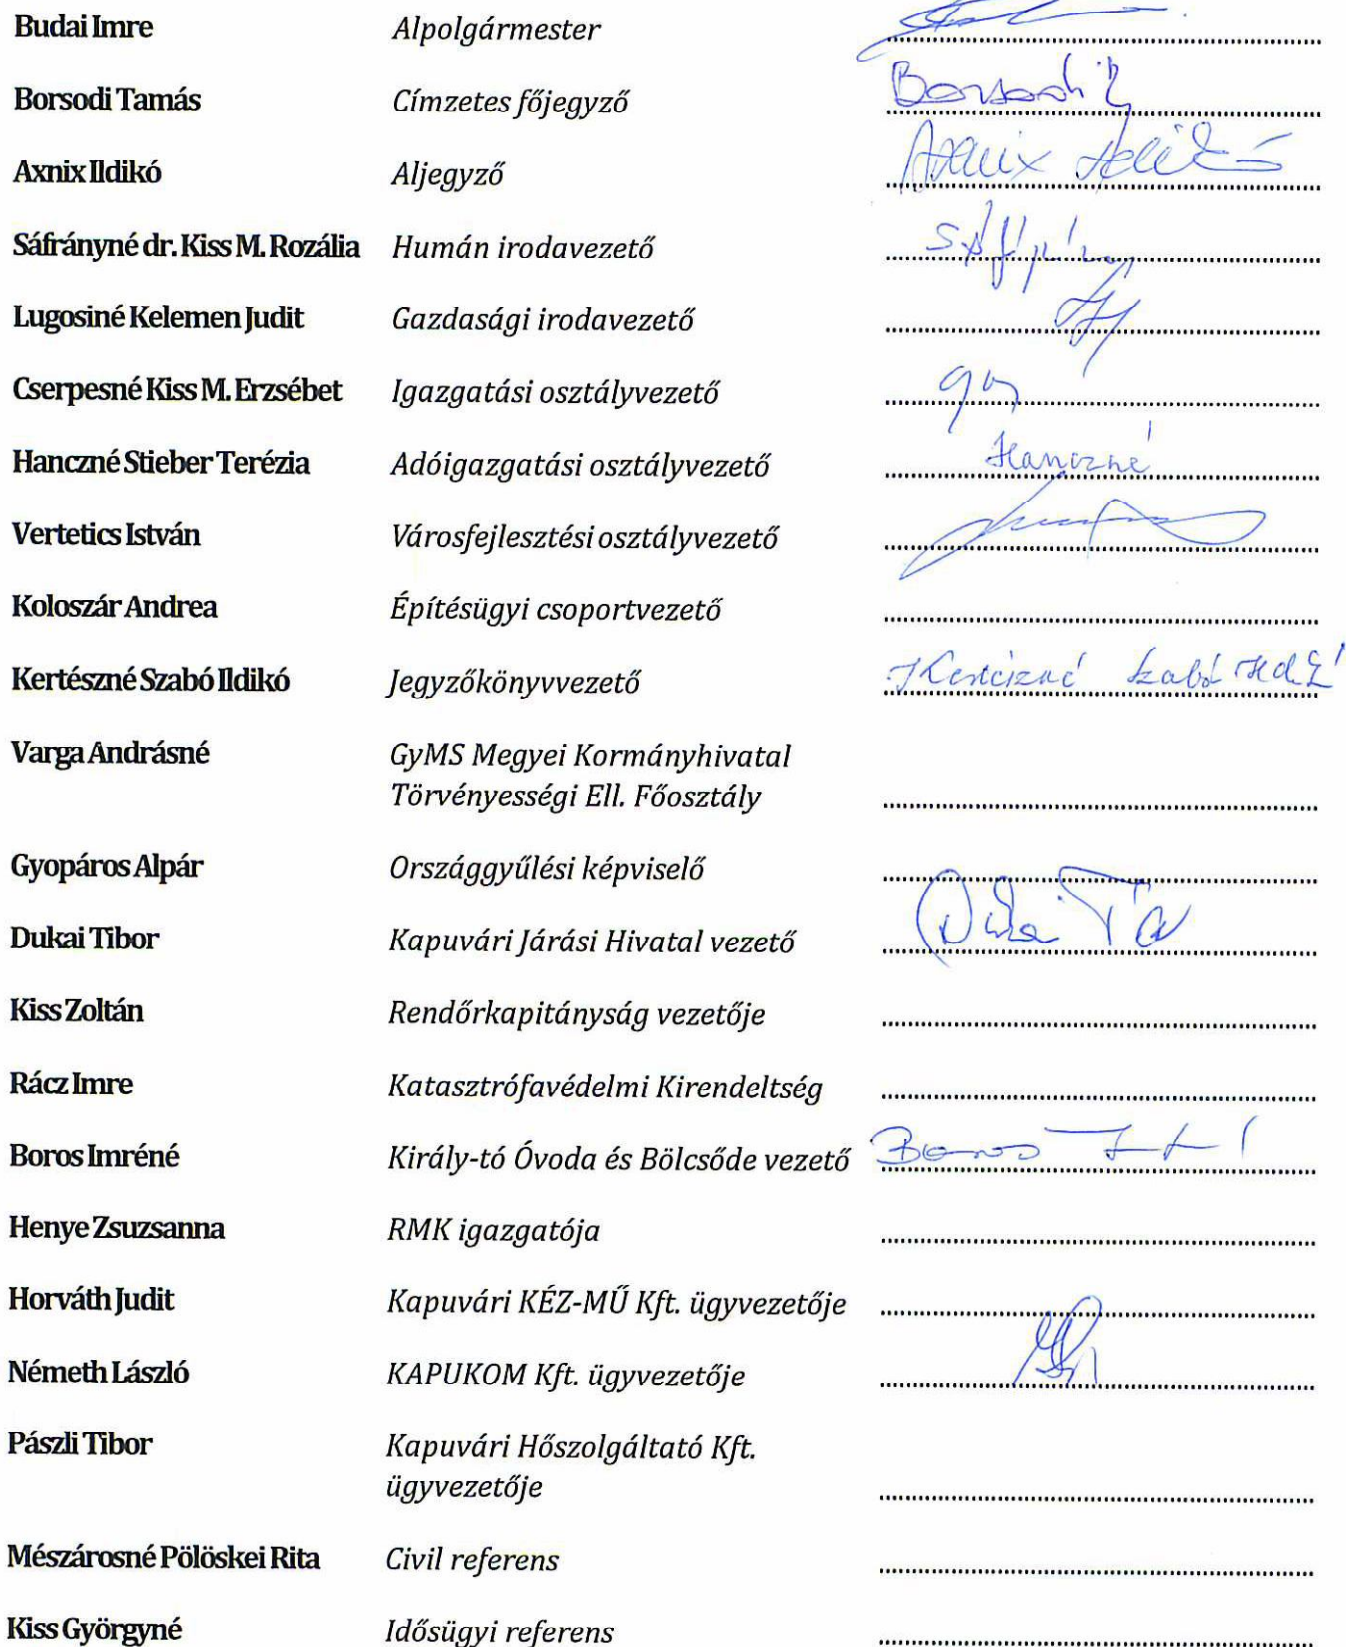 Budai Imre Alpolgármester
Borsodi Tamás Címzetes főjegyző Borsodi
Axnix Ildikó Aljegyző Axnix Ildikó
Sáfrányné dr. Kiss M. Rozália Humán irodavezető
Lugosiné Kelemen Judit Gazdasági irodavezető
Cserpesné Kiss M. Erzsébet Igazgatási osztályvezető
Hanczné Stieber Terézia Adóigazgatási osztályvezető Hanczné
Vertetics István Városfejlesztési osztályvezető
Koloszár Andrea Építésügyi csoportvezető
Kertészné Szabó Ildikó Jegyzőkönyvvezető Kertészné Szabó Ildikó
Varga Andrásné GyMS Megyei Kormányhivatal
Törvényességi Ell. Főosztály
Gyopáros Alpár Országgyűlési képviselő
Dukai Tibor Kapuvári Járási Hivatal vezető
Kiss Zoltán Rendőrkapitányság vezetője
Rácz Imre Katasztrófavédelmi Kirendeltség
Boros Imréné Király-tó Óvoda és Bölcsőde vezető Boros
Henye Zsuzsanna RMK igazgatója
Horváth Judit Kapuvári KÉZ-MŰ Kft. ügyvezetője
Németh László KAPUKOM Kft. ügyvezetője
Pászli Tibor Kapuvári Hőszolgáltató Kft.
ügyvezetője
Mészárosné Pölöskei Rita Civil referens
Kiss Györgyné Idősügyi referens